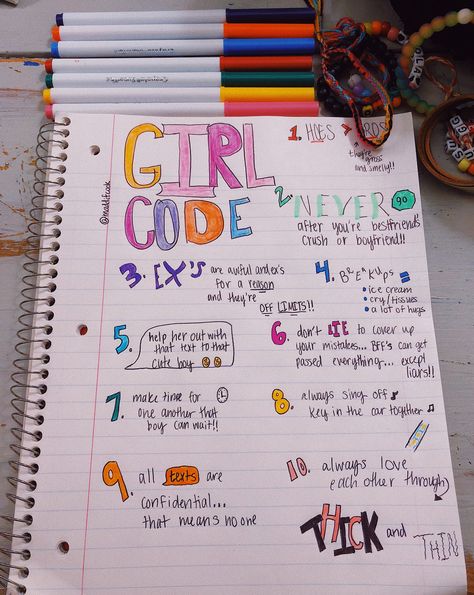 GIRL
CODE
@mattifcook
1. HOES > BROS
they're gross
and smelly!!
2 NEVER go
after you're bestfriends
crush or boyfriend!!
3. EX'S are awful and ex's
for a reason
and they're
OFF LIMITS!!
4. BREAKUPS =
• ice cream
• cry/tissues
• a lot of hugs
5. help her out with
that text to that
cute boy
6. don't LIE to cover up
your mistakes... BFF's can get
passed everything... except
liars!!
7 make time for
one another that
boy can wait!!
8. always sing off
key in the car together
9. all texts are
confidential...
that means no one
10. always love
each other through
THICK and THIN